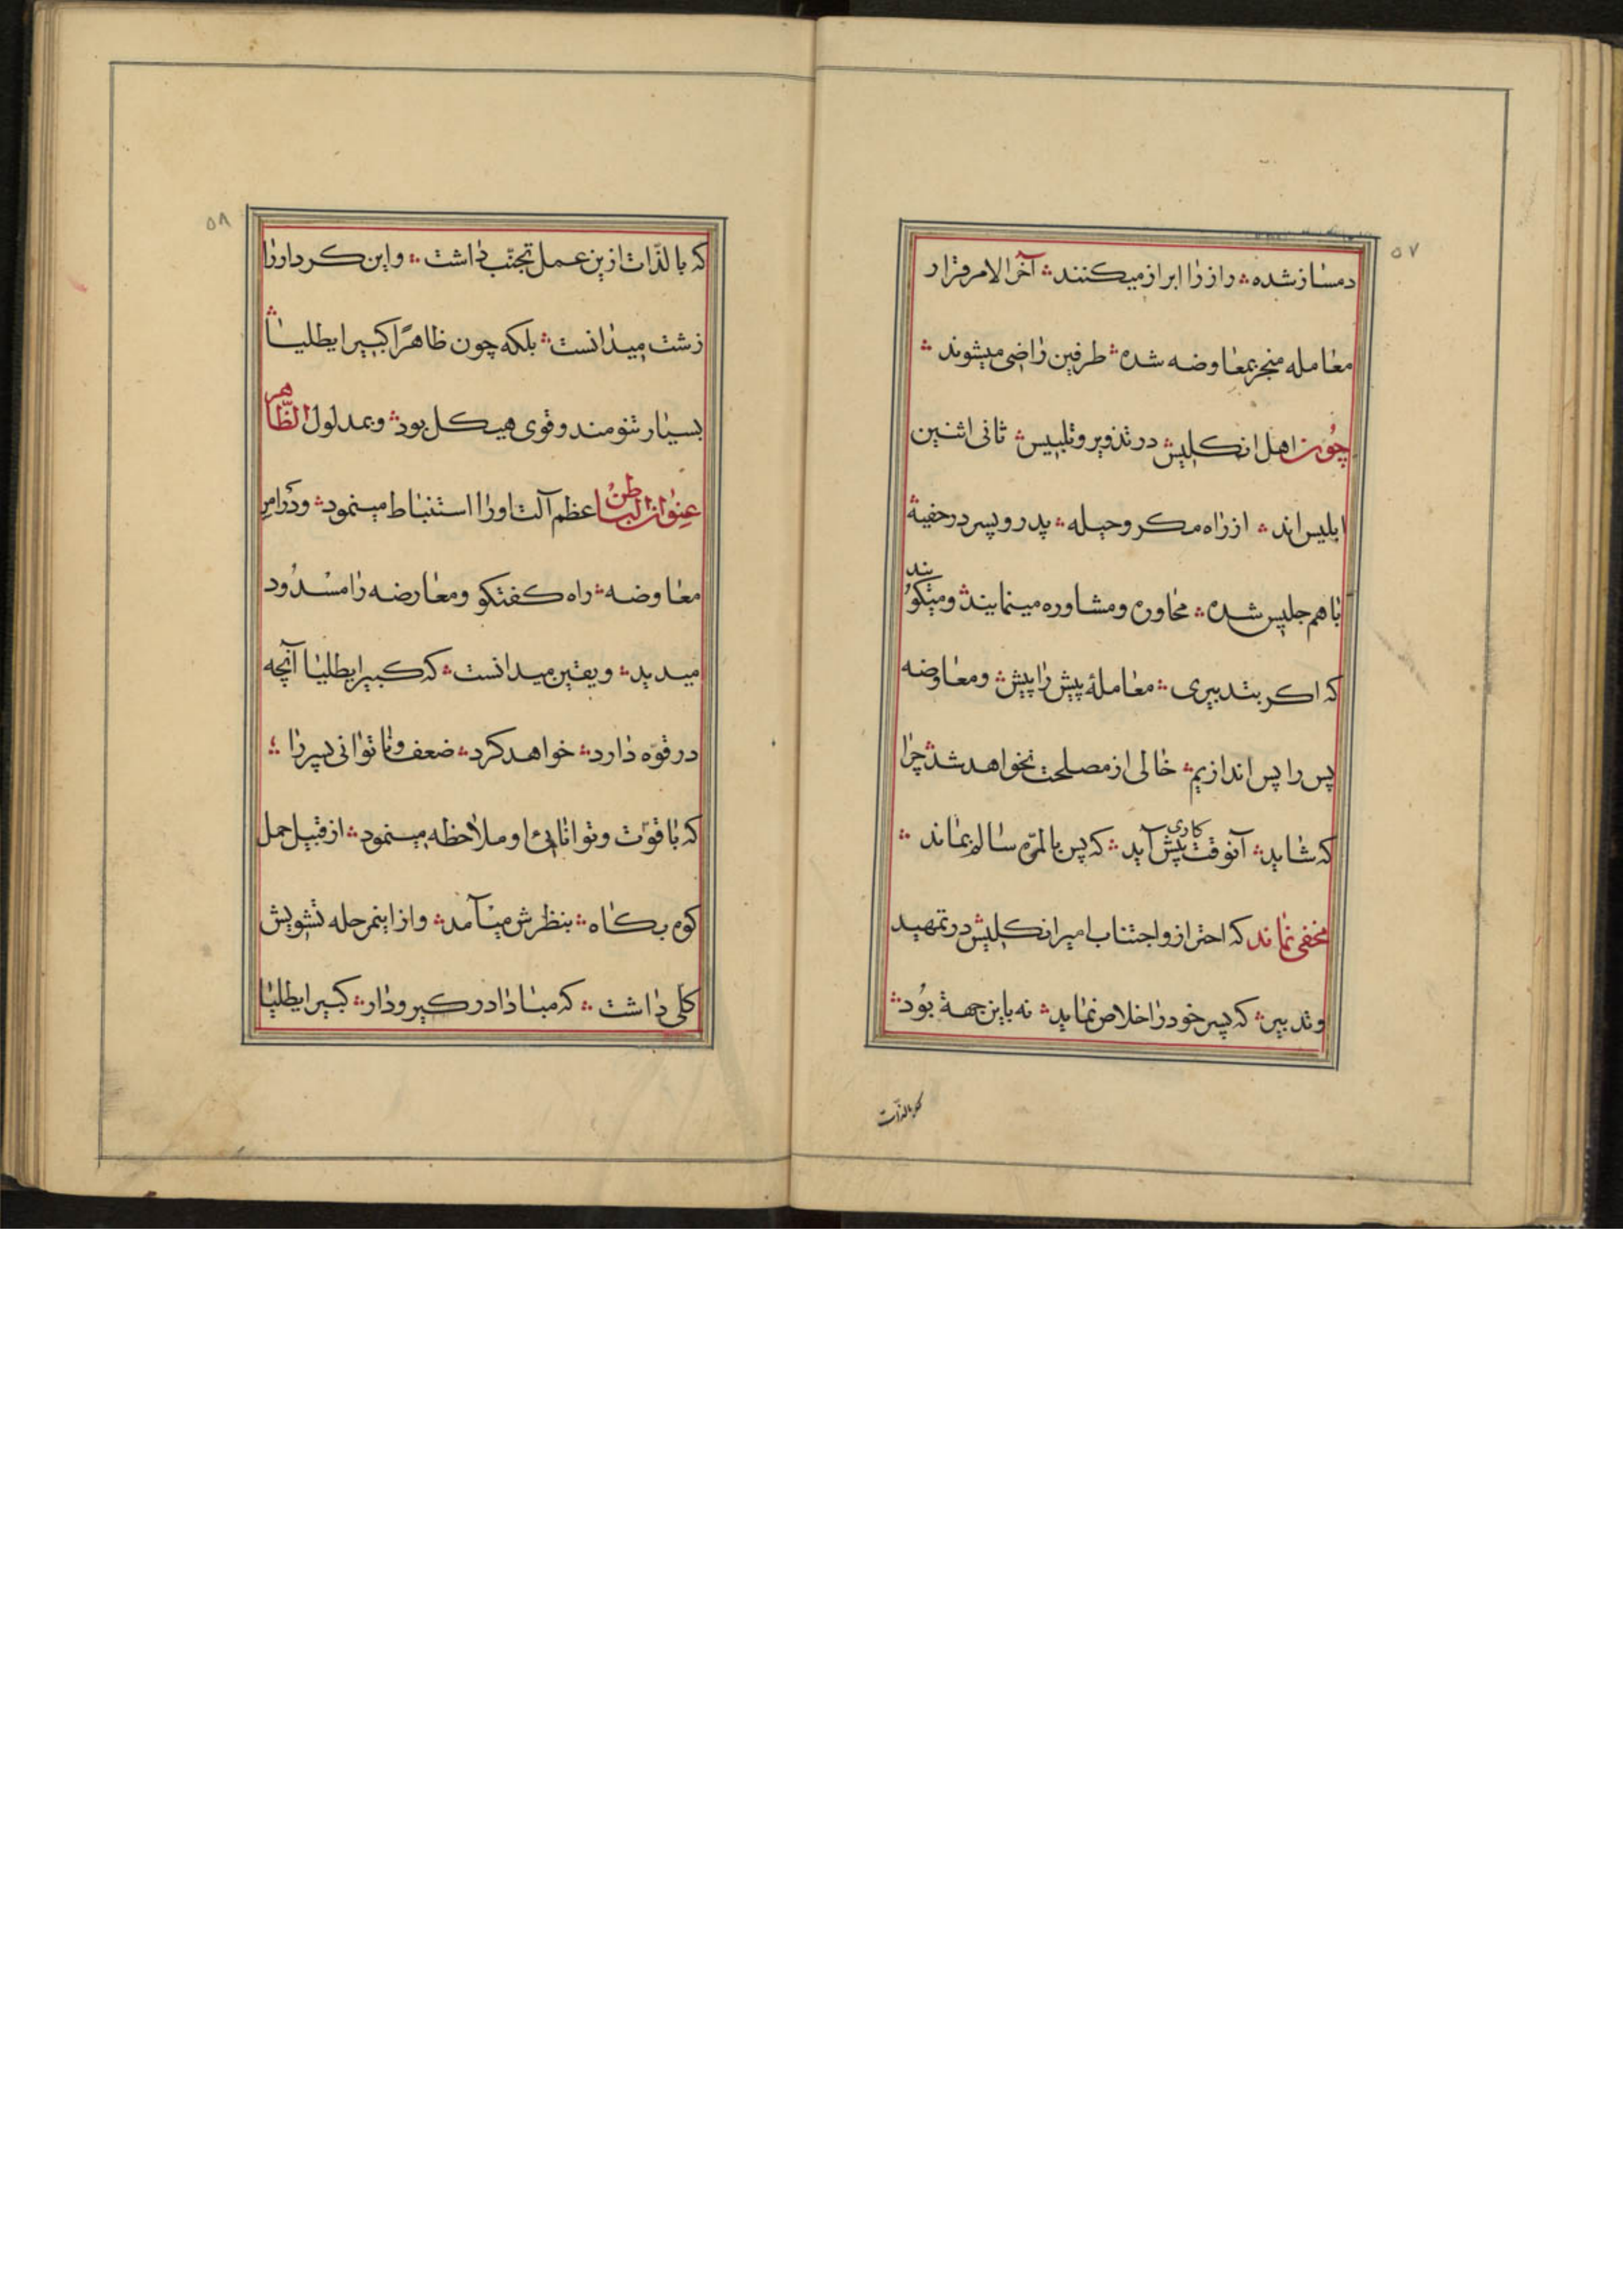 ۵۷
دمساز شده ؞ راز را ابراز میکنند ؞ آخر الامر قرار
معامله منجر بمعاوضه شده ؞ طرفین راضی میشوند ؞
چون اهل انکلیش در تذویر و تلبیس ؞ ثانی اثنین
ابلیس اند ؞ از راه مکر و حیله ؞ پدر و پسر در خفیة
با هم جلیس شده ؞ محاوره و مشاوره مینمایند ؞ و میکویند
که اکر بتدبیری ؞ معاملهٔ پیش را پیش ؞ و معاوضه
پس را پس اندازیم ؞ خالی از مصلحت نخواهد شد ؞ چرا
که شاید ؞ آنوقت کاری پیش آید ؞ که پس بالمرّه سالم بماند ؞
مخفی نماند که احتراز و اجتناب امیر انکلیش در تمهید
و تدبیر ؞ که پسر خود را خلاص نماید ؞ نه باین جهة بود ؞
که بالذّات
۵۸
که بالذّات ازین عمل تجنّب داشت ؞ و این کردار را
زشت میدانست ؞ بلکه چون ظاهرًا کبیر ایطلیا ؞
بسیار تنومند و قوی هیکل بود ؞ و بمدلول الظّاهر
عنوان الباطن عظم آلت او را استنباط مینمود ؞ و در امر
معاوضه ؞ راه کفتکو و معارضه را مسدود
میدید ؞ و یقین میدانست ؞ که کبیر ایطلیا آنچه
در قوّه دارد ؞ خواهد کرد ؞ ضعف و ناتوانی پسر را ؞
که با قوّت و توانایئ او ملاحظه مینمود ؞ از قبیل حمل
کوه بکاه ؞ بنظرش میآمد ؞ و از اینمرحله تشویش
کلی داشت ؞ که مبادا در کیر و دار ؞ کبیر ایطلیا